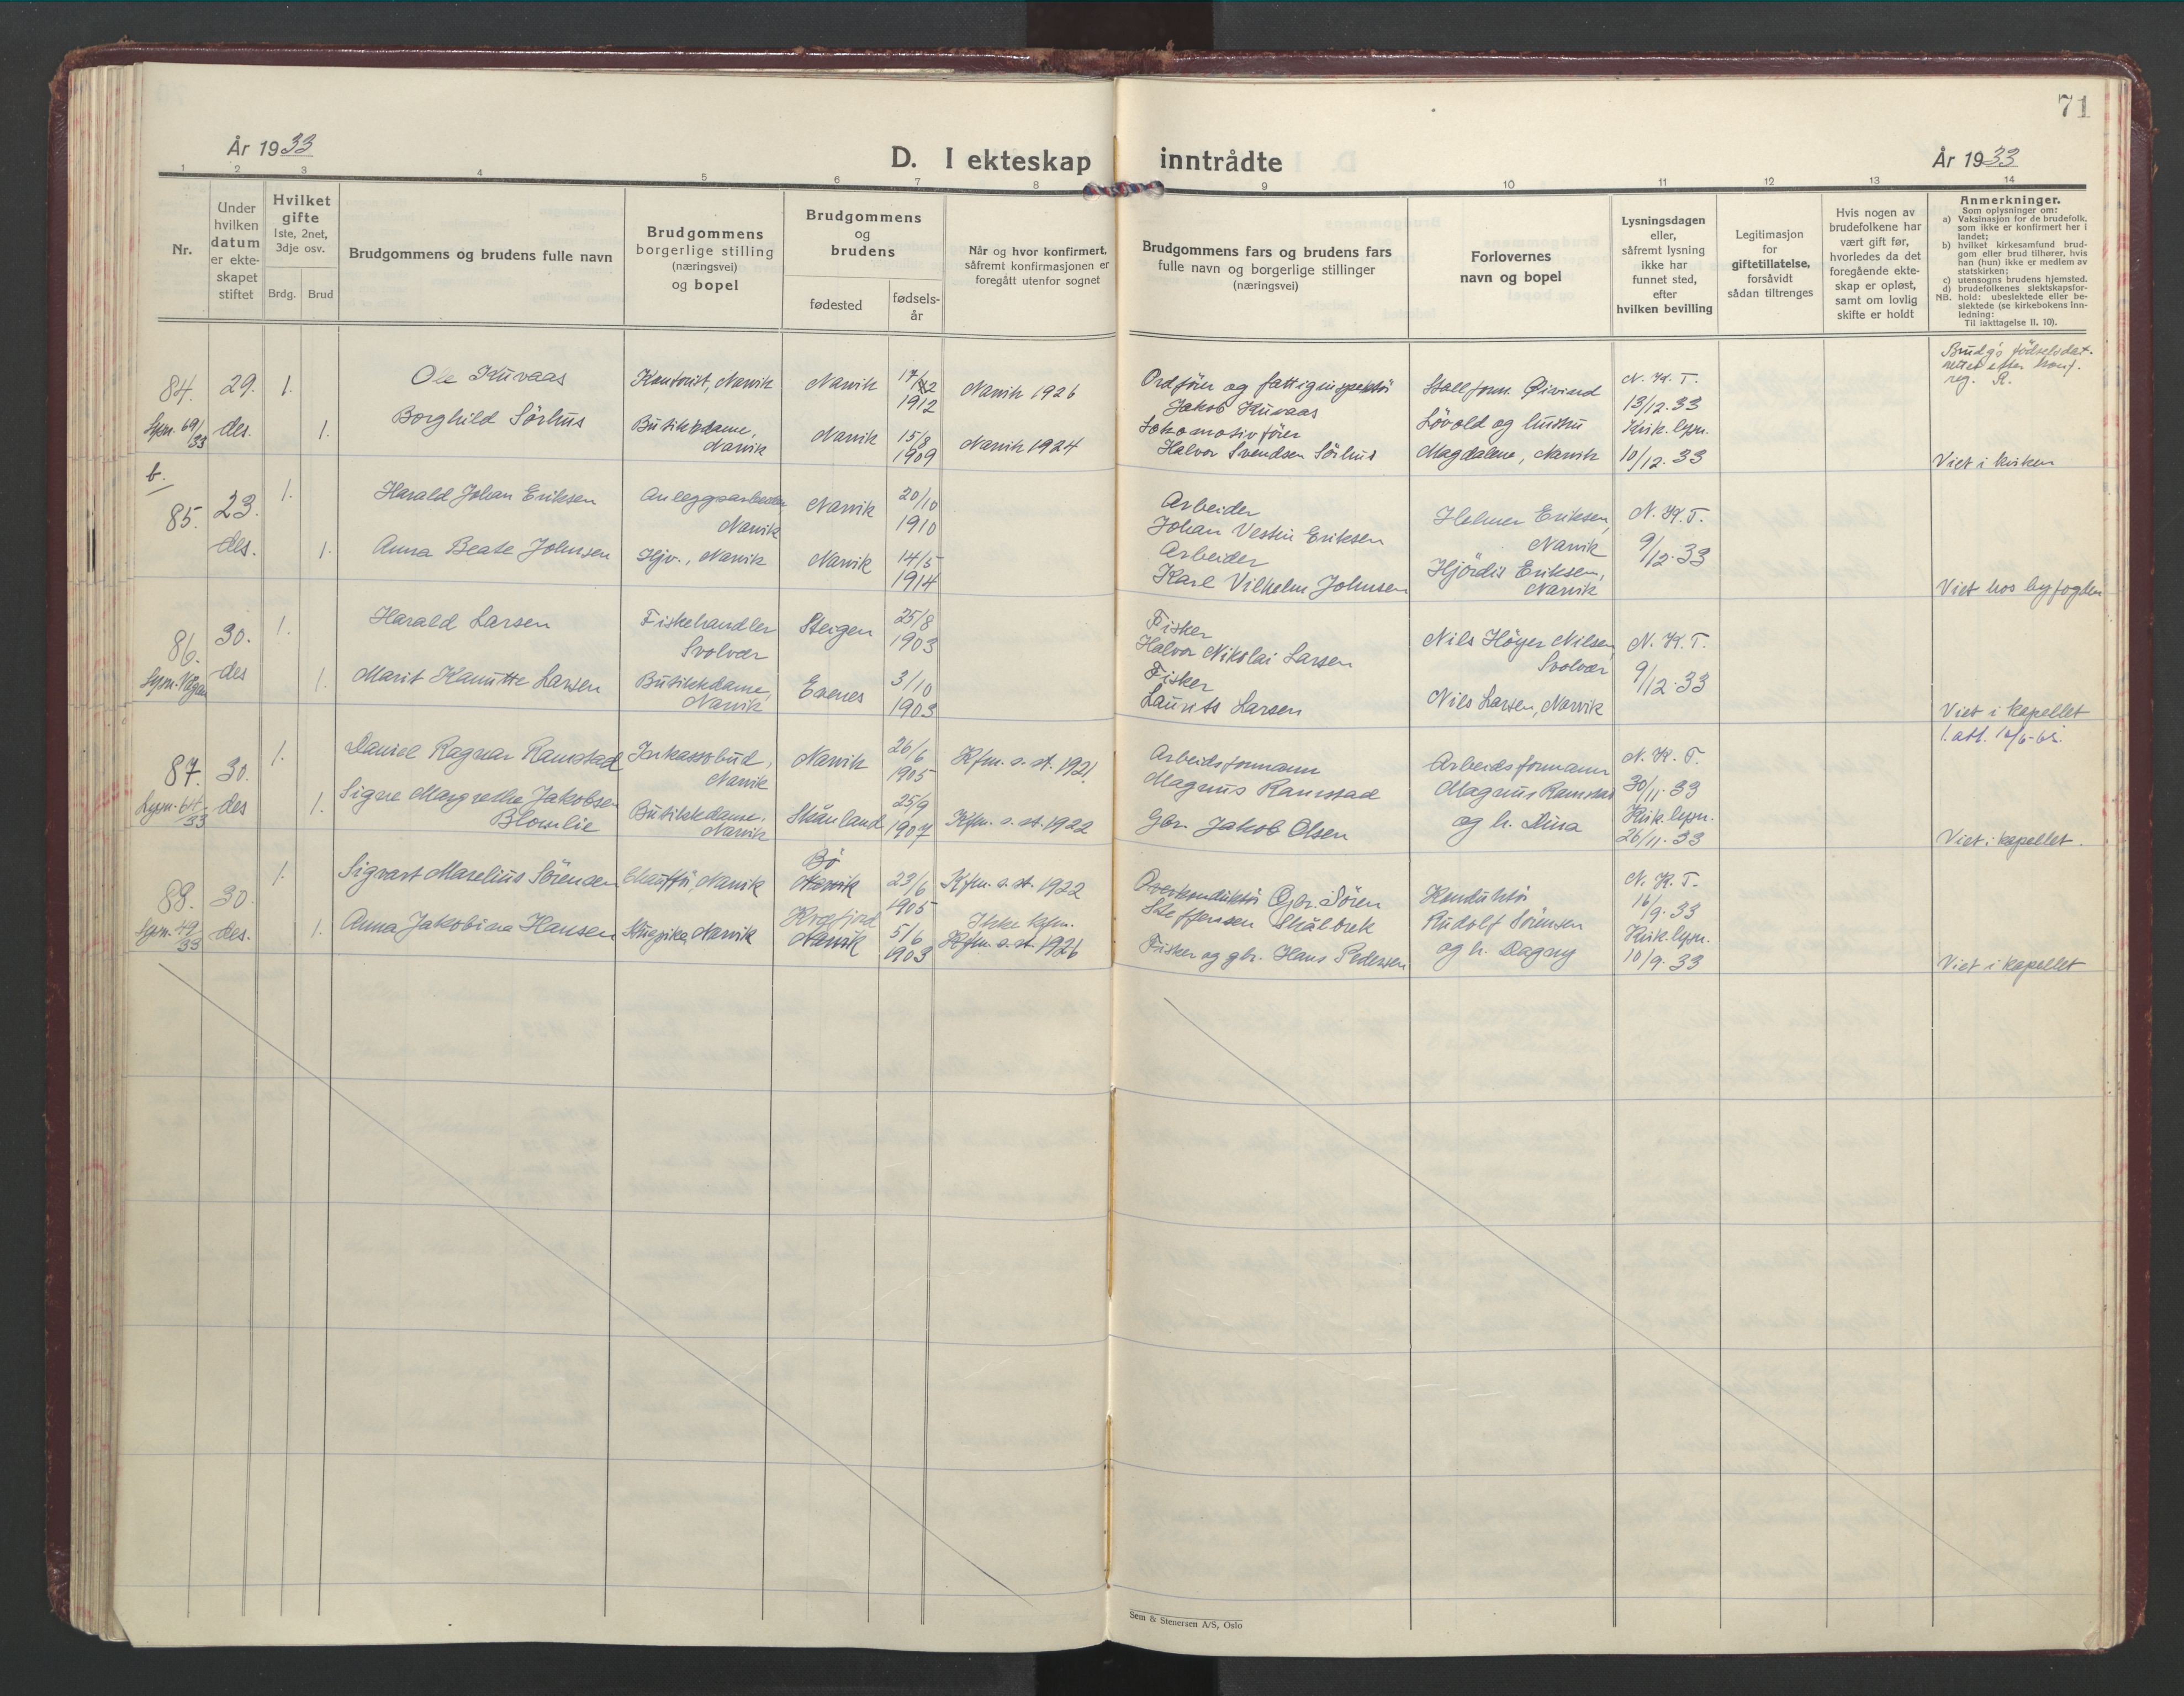 71
År 1933
D. I ekteskap inntrådte
År 1933
1 2 3 4 5 6 7 8 9 10 11 12 13 14
Nr.
Under
hvilken
datum
er ekte-
skapet
stiftet
Hvilket
gifte
1ste, 2net,
3dje osv.
Brdg. Brud
Brudgommens og brudens fulle navn
Brudgommens
borgerlige stilling
(næringsvei)
og bopel
Brudgommens
og
brudens
fødested
fødsels-
år
Når og hvor konfirmert,
såfremt konfirmasjonen er
foregått utenfor sognet
Brudgommens fars og brudens fars
fulle navn og borgerlige stillinger
(næringsvei)
Forlovernes
navn og bopel
Lysningsdagen
eller,
såfremt lysning
ikke har
funnet sted,
efter
hvilken bevilling
Legitimasjon
for
giftetillatelse,
forsåvidt
sådan tiltrenges
Hvis nogen av
brudefolkene har
vært gift før,
hvorledes da det
foregående ekte-
skap er opløst,
samt om lovlig
skifte er holdt
Anmerkninger.
Som oplysninger om:
a) Vaksinasjon for de brudefolk,
som ikke er konfirmert her i
landet;
b) hvilket kirkesamfund brud-
gom eller brud tilhører, hvis
han (hun) ikke er medlem av
statskirken;
c) utensogns brudens hjemsted.
d) brudefolkenes slektskapsfor-
NB. hold: ubeslektede eller be-
slektede (se kirkebokens inn-
ledning:
Til iakttagelse II, 10).
84.
Lysn. 69/33
b.
29.
des.
1.
1.
Ole Kuvaas
Borghild Sörhus
Kontorist, Narvik
Butikkdame,
Narvik
Narvik
Narvik
17/12
1912
15/8
1909
Narvik 1926
Narvik 1924
Ordförer og fattiginspektör
Jakob Kuvaas
Lokomotivförer
Halvor Svendsen Sörhus
Stallform. Øivind
Lövold og hustru
Magdalene, Narvik
N. K. T.
13/12.33
Kirk. lysn.
10/12.33
Brudg's födselsdat.
rettet efter konf.
reg. R.
Viet i kirken
85.
23.
des.
1.
1.
Harald Johan Eriksen
Anna Beate Johnsen
Anleggsarbeider
Narvik
Hjv., Narvik
Narvik
Narvik
20/10
1910
14/5
1914
Arbeider
Johan Vestin Eriksen
Arbeider
Karl Vilhelm Johnsen
Helmer Eriksen,
Narvik
Hjördis Eriksen,
Narvik
N. K. T.
9/12.33
Viet hos byfogden
86.
Lysn. Vågan
30.
des
1.
1.
Harald Larsen
Marit Kanutte Larsen
Fiskehandler
Svolvær
Butikkdame,
Narvik
Steigen
Evenes
25/8
1903
3/10
1903
Fisker
Halvor Nikolai Larsen
Fisker
Laurits Larsen
Nils Höyer Nilsen,
Svolvær
Nils Larsen, Narvik
N. K. T.
9/12.33
Viet i kapellet
87.
Lysn. 64/33
30.
des
1.
1.
Daniel Ragnar Ramstad
Signe Margrethe Jakobsen
Blomlie
Inkassobud,
Narvik
Butikkdame,
Narvik
Narvik
Skånland
26/6
1905
25/9
1907
Kfm. s. st. 1921.
Kfm. s. st. 1922
Arbeidsformann
Magnus Ramstad
Gbr. Jakob Olsen
Arbeidsformann
Magnus Ramstad
og h. Dina
N. K. T.
30/11.33
Kirk. lysn.
26/11.33
1. att. 14/6-61.
Viet i kapellet.
88.
Lysn. 49/33
30.
des.
1.
1.
Sigvart Marelius Sörensen
Anna Jakobine Hansen
Chauffør, Narvik
Huspike, Narvik
Bö
Narvik
Kvæfjord
Narvik
23/6
1905
5/6
1903
Kfm. s. st. 1922
Ikke kfm.
Kfm. s. st. 1926
Overkonduktör Gbr. Sören
Steffensen Skålbrek
Fisker og gbr. Hans Pedersen
Konduktör
Rudolf Sörensen
og h. Dagny
N. K. T.
16/9.33
Kirk. lysn.
10/9.33
Viet i kapellet
Sem & Stenersen A/S, Oslo